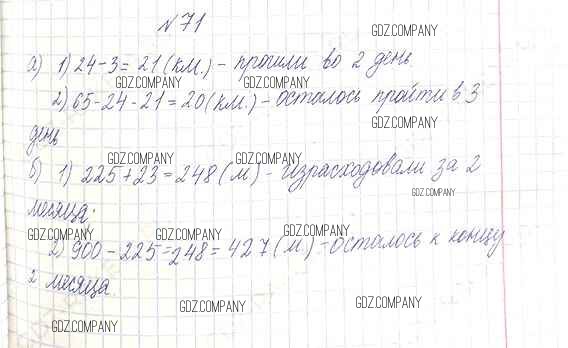 № 71
GDZ.COMPANY
а) 1) 24-3=21(км.) - прошли во 2 день
GDZ.COMPANY GDZ.COMPANY
2) 65-24-21=20(км.) - осталось пройти в 3
GDZ.COMPANY
день
GDZ.COMPANY GDZ.COMPANY
б) 1) 225+23=248(м) - израсходовали за 2
GDZ.COMPANY
месяца.
GDZ.COMPANY GDZ.COMPANY GDZ.COMPANY
2) 900-225=248=427(м) - осталось к концу
2 месяца
GDZ.COMPANY GDZ.COMPANY
GDZ.COMPANY